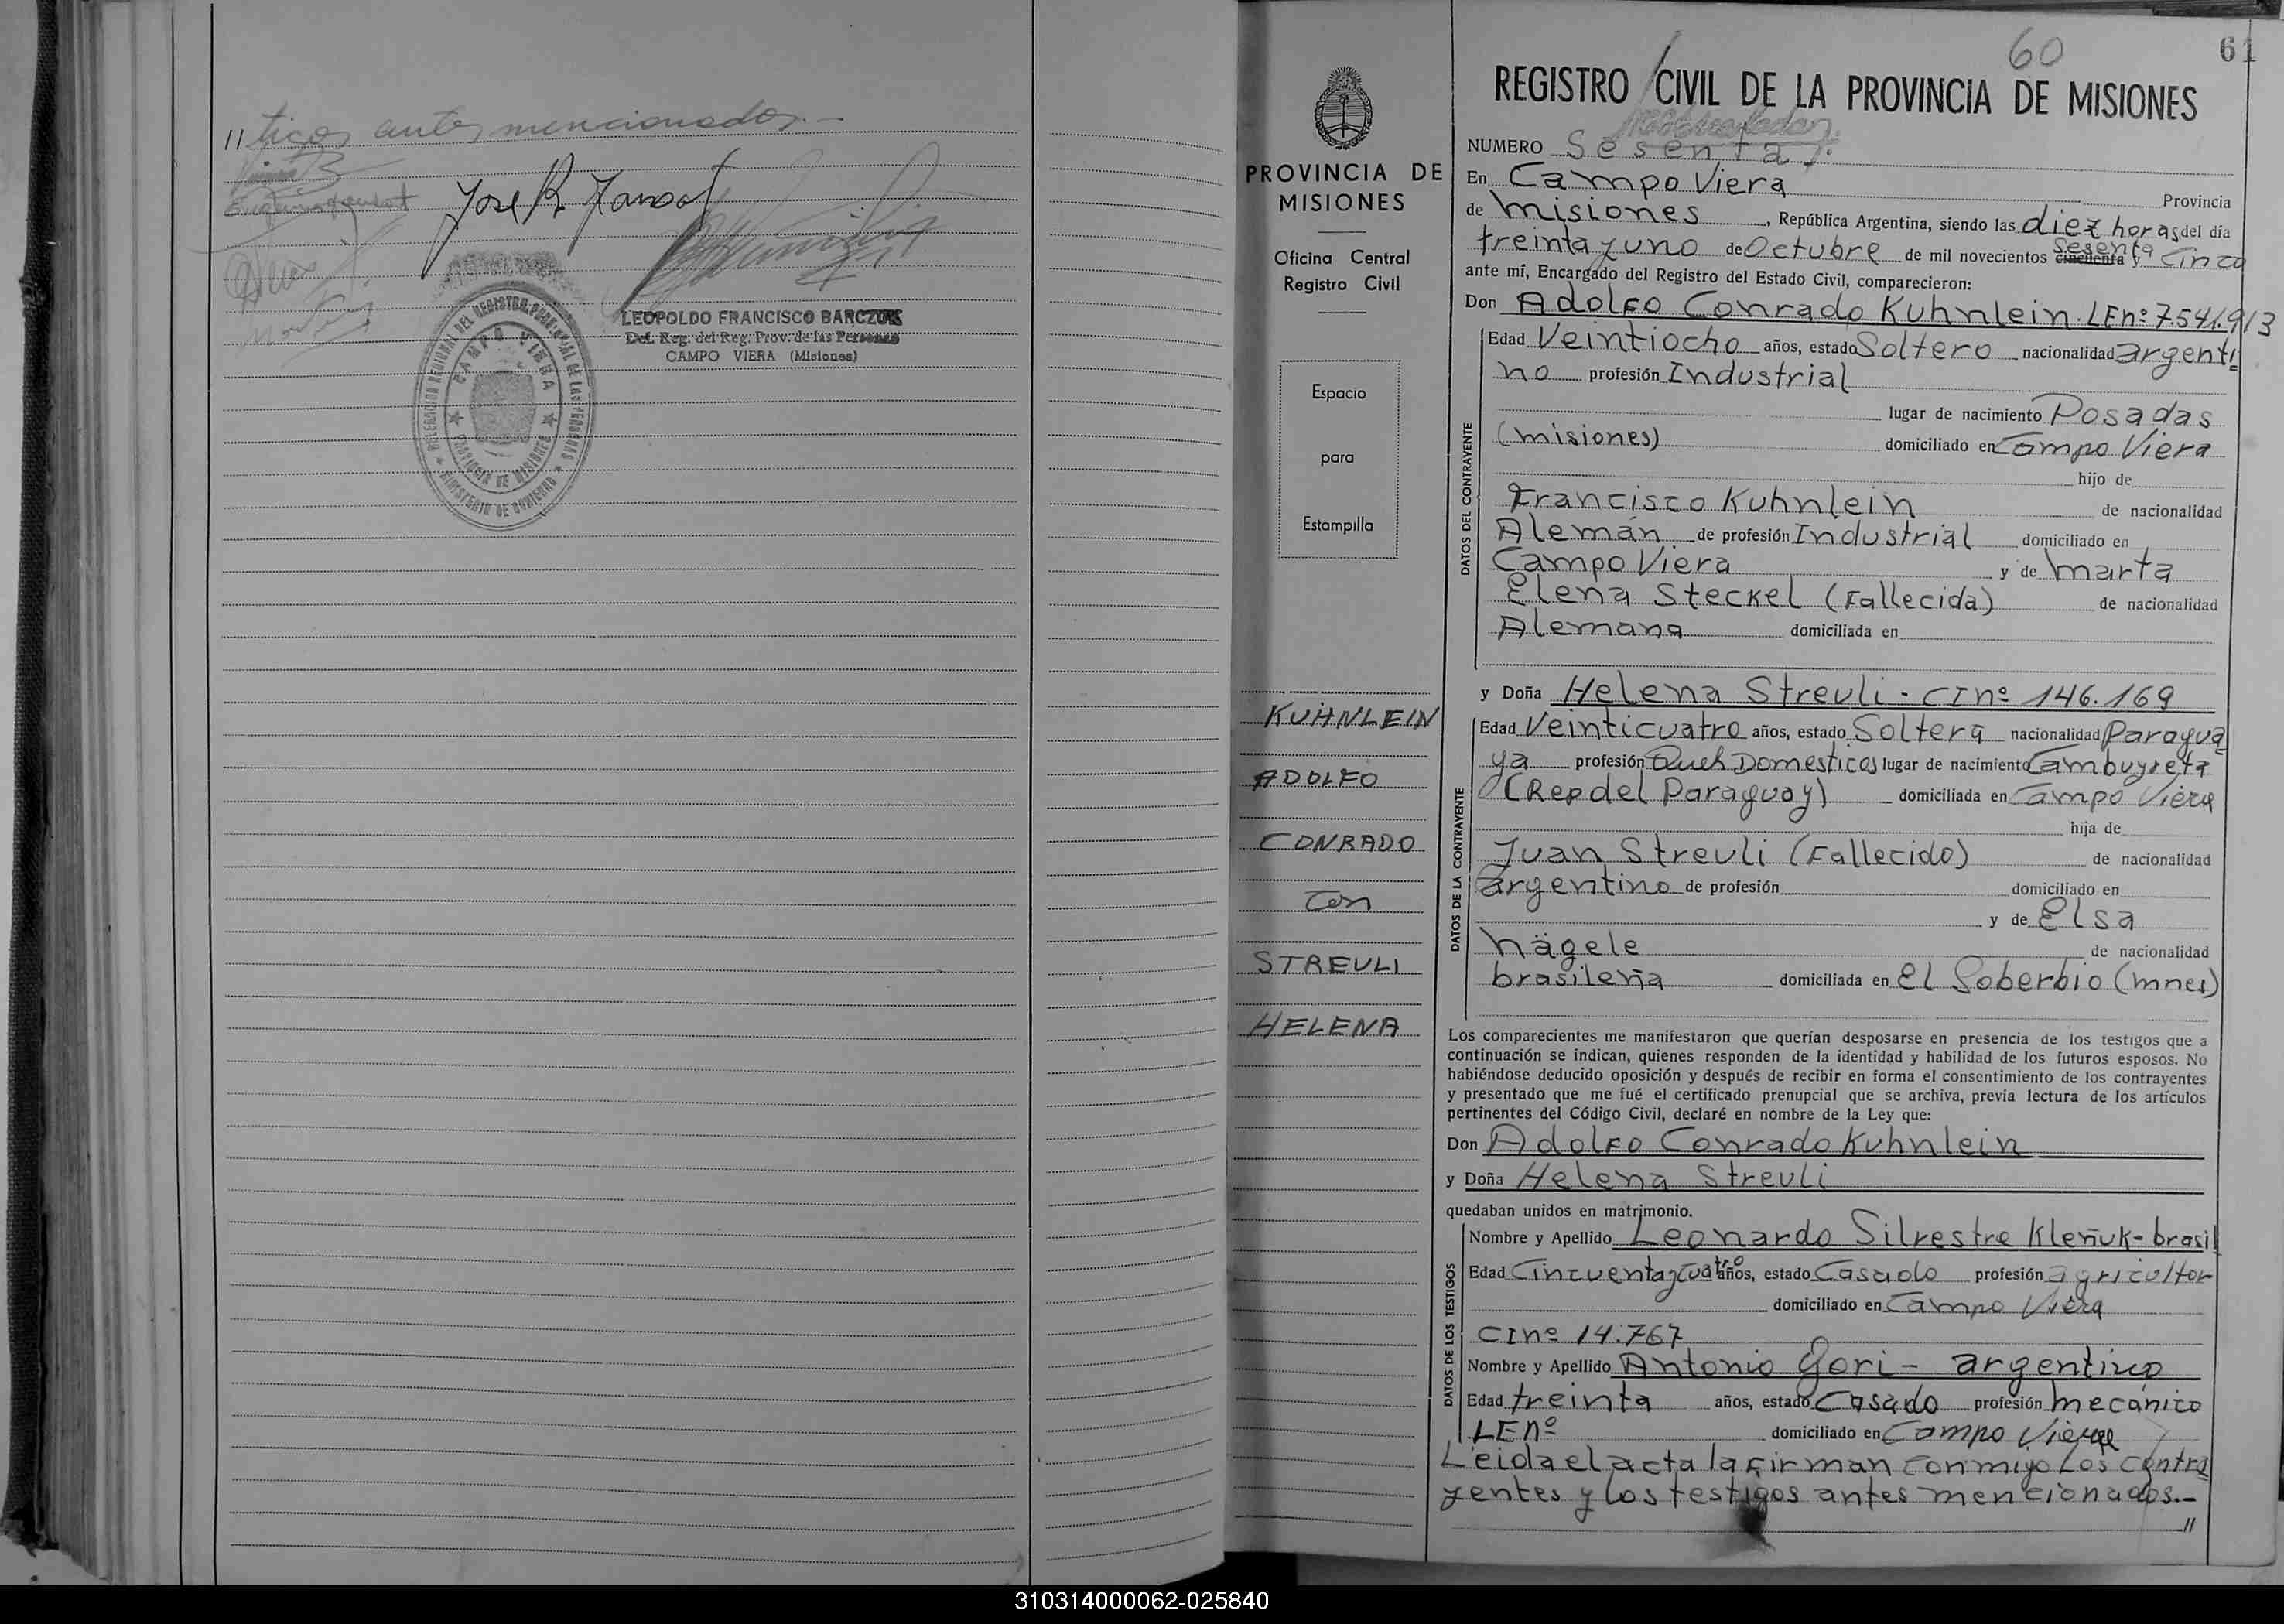 // tigos antes mencionados.-
Jose R.
LEOPOLDO FRANCISCO BARCZUK
Del. Reg. del Reg. Prov. de las Personas
CAMPO VIERA (Misiones)
DELEGACION REGIONAL DEL REGISTRO PROVINCIAL DE LAS PERSONAS
CAMPO VIERA
PROVINCIA DE MISIONES
MINISTERIO DE GOBIERNO
60
61
REGISTRO CIVIL DE LA PROVINCIA DE MISIONES
PROVINCIA DE
MISIONES
Oficina Central
Registro Civil
Espacio
para
Estampilla
KUHNLEIN
ADOLFO
CONRADO
con
STREULI
HELENA
NUMERO Sesenta).
En Campo Viera Provincia
de Misiones, República Argentina, siendo las diez horas del día
treinta y uno de Octubre de mil novecientos cincuenta y sesenta y cinco
ante mí, Encargado del Registro del Estado Civil, comparecieron:
Don Adolfo Conrado Kuhnlein. LEnº 7.541.913
DATOS DEL CONTRAYENTE
Edad Veintiocho años, estado Soltero nacionalidad argenti
no profesión Industrial
lugar de nacimiento Posadas
(Misiones) domiciliado en Campo Viera
hijo de
Francisco Kuhnlein de nacionalidad
Alemán de profesión Industrial domiciliado en
Campo Viera y de Marta
Elena Steckel (Fallecida) de nacionalidad
Alemana domiciliada en
y Doña Helena Streuli - CInº 146.169
DATOS DE LA CONTRAYENTE
Edad Veinticuatro años, estado Soltera nacionalidad Paragua
ya profesión Queh Domesticos lugar de nacimiento Cambuyreta
(Rep del Paraguay) domiciliada en Campo Viera
hija de
Juan Streuli (Fallecido) de nacionalidad
argentino de profesión domiciliado en
y de Elsa
Nägele de nacionalidad
brasileña domiciliada en El Soberbio (Mnes)
Los comparecientes me manifestaron que querían desposarse en presencia de los testigos que a
continuación se indican, quienes responden de la identidad y habilidad de los futuros esposos. No
habiéndose deducido oposición y después de recibir en forma el consentimiento de los contrayentes
y presentado que me fué el certificado prenupcial que se archiva, previa lectura de los artículos
pertinentes del Código Civil, declaré en nombre de la Ley que:
Don Adolfo Conrado Kuhnlein
y Doña Helena Streuli
quedaban unidos en matrimonio.
DATOS DE LOS TESTIGOS
Nombre y Apellido Leonardo Silvestre Kleñuk - brasil
Edad Cincuenta y cuatro años, estado Casado profesión agricultor
domiciliado en Campo Viera
CInº 14.767
Nombre y Apellido Antonio Gori - argentino
Edad treinta años, estado Casado profesión mecánico
LEnº domiciliado en Campo Viera
Leida el acta la firman conmigo Los contra
yentes y los testigos antes mencionados.-
//
310314000062-025840